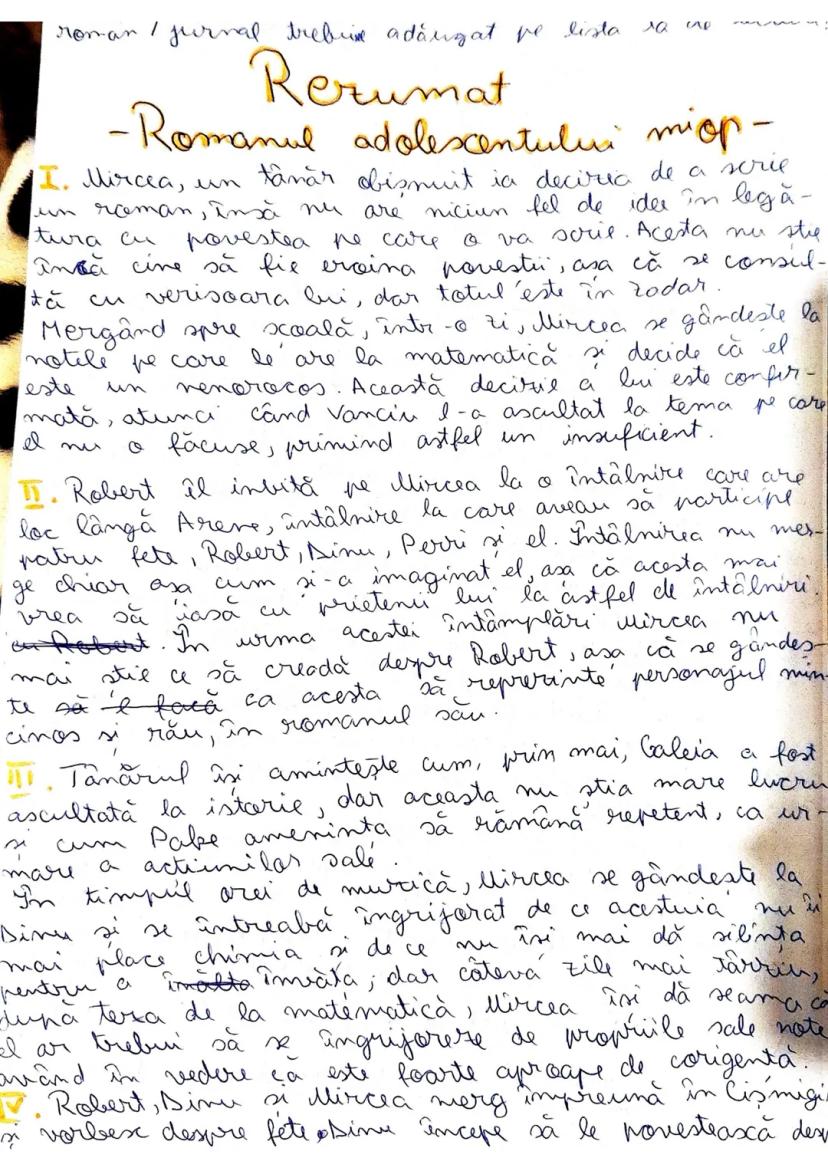 roman / jurnal trebuie adăugat pe lista
Rezumat
-Romanul adolescentului miop-
I. Mircea, un tânăr obișnuit ia decizia de a scrie
un roman, însă nu are niciun fel de idee în legă-
tura cu povestea pe care o va scrie. Acesta nu știe
încă cine să fie eroina povestii, asa că se consul-
tă cu verisoara lui, dar totul este în zadar.
Mergând spre scoală, într-o zi, Mircea se gândește la
notele pe care le are la matematică si decide că el
este un nenorocos. Această decizie a lui este confir-
mată, atunci când Vanciu l-a ascultat la tema pe care
el nu o făcuse, primind astfel un insuficient.
II. Robert îl invită pe Mircea la o întâlnire care are
loc lângă Arene, întâlnire la care aveau să participe
patru fete, Robert, Dinu, Perri si el. Întâlnirea nu mer-
ge chiar asa cum si-a imaginat el, asa că acesta mai
vrea să iasă cu prietenii lui la astfel de întâlniri.
cu Robert. În urma acestei întâmplări Mircea nu
mai stie ce să creadă despre Robert, asa că se gândes-
te să îl facă ca acesta să reprezinte personajul min-
cinos si rău, în romanul său.
III. Tânărul își amintește cum, prin mai, Caleia a fost
ascultată la istorie, dar aceasta nu știa mare lucru
si cum Pake amenința să rămână repetent, ca ur-
mare a actiunilor sale.
În timpul orei de muzică, Mircea se gândește la
Dinu si se întreabă îngrijorat de ce acestuia nu îi
mai place chimia si de ce nu îsi mai dă silința
pentru a învăța; dar câteva zile mai târziu,
după teza de la matematică, Mircea îsi dă seama că
el ar trebui să se îngrijoreze de propriile sale note
având în vedere că este foarte aproape de corigentă.
IV. Robert, Dinu si Mircea merg împreună în Cișmigi
și vorbesc despre fete. Dinu începe să le povestească des